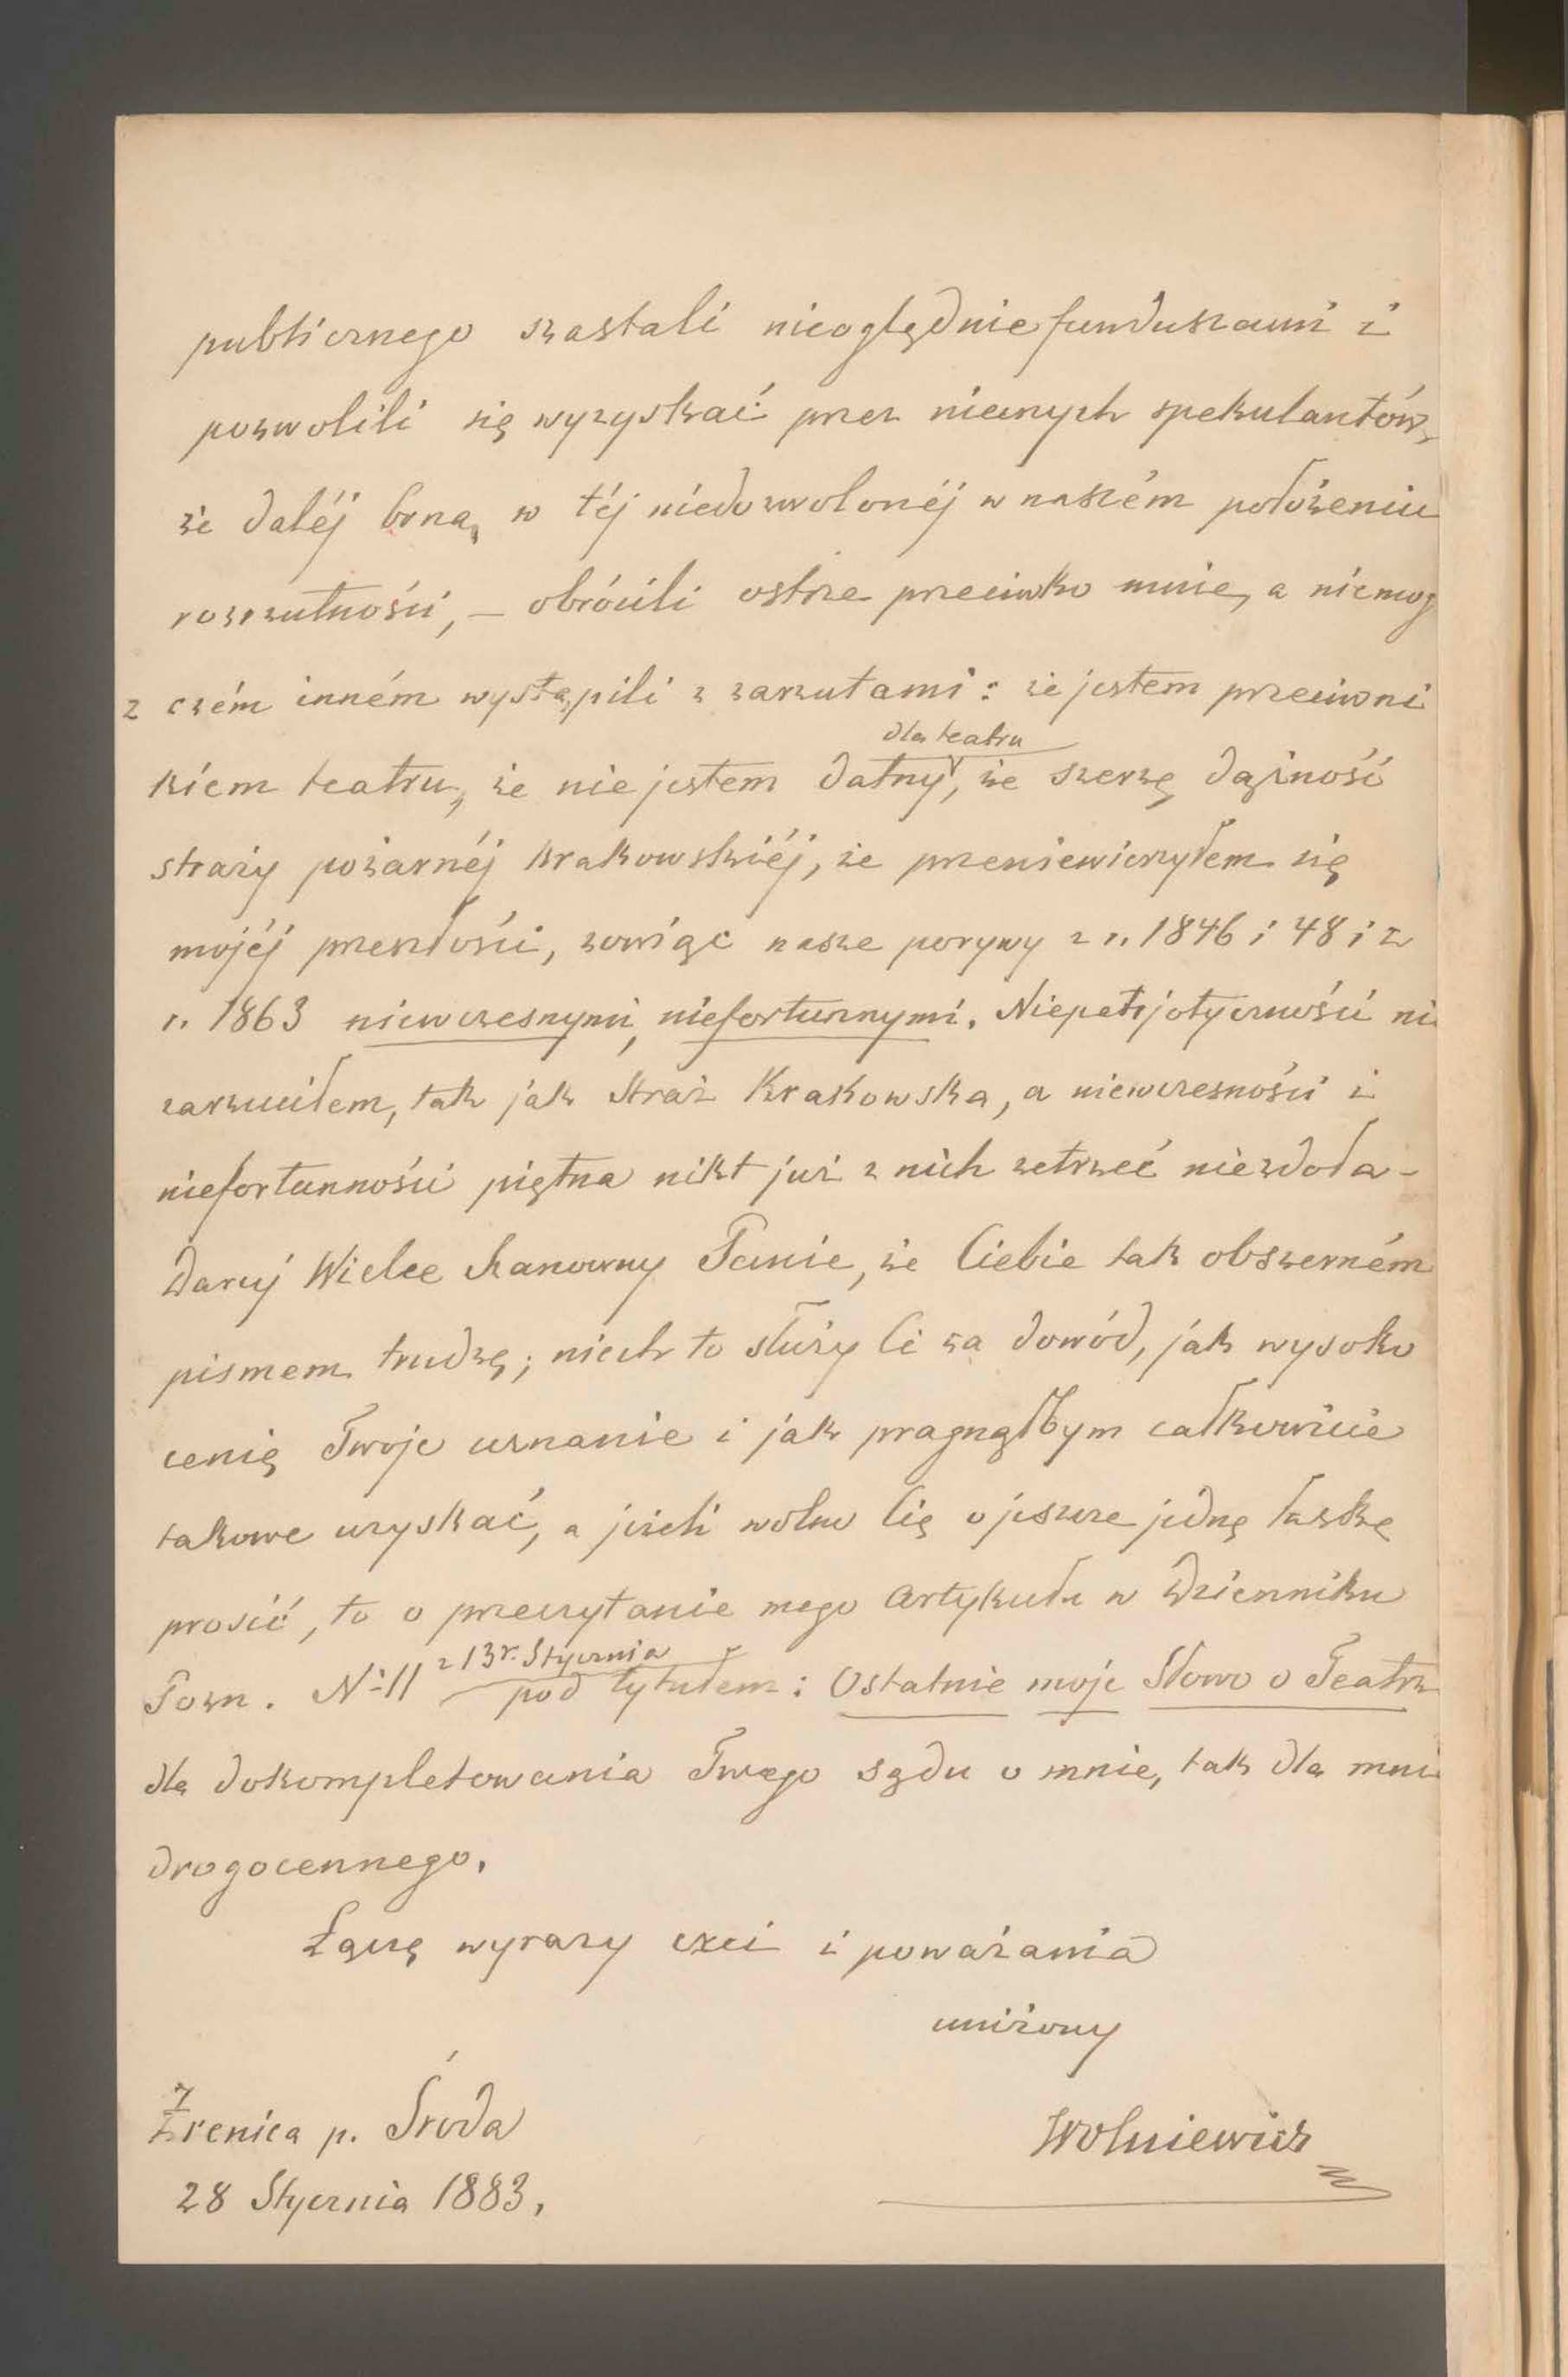 publicznego szastali nieoględnie funduszami i
pozwolili się wyzyskać przez niecnych spekulantów,
że daléj brną w téj niedozwolonéj w naszém położeniu
rozrzutności, – obrócili ostrze przeciwko mnie, a niemog
z czém inném wystąpili z zarzutami: że jestem przeciwni
dla teatru
kiem teatru, że nie jestem datny, że szerzę dążność
straży pożarnéj krakowskiéj, że przeniewierzyłem się
mojéj przeszłości, zowiąc nasze porywy z r. 1846 i 48 i z
r. 1863 niewczesnymi, niefortunnymi. Niepatrjotyczności ni
zarzuciłem, tak jak Straż Krakowska, a niewczesności i
niefortunności piętna nikt już z nich zetrzeć niezdoła –
Daruj Wielce Szanowny Panie, że Ciebie tak obszerném
pismem trudzę; niech to służy Ci za dowód, jak wysoko
cenię Twoje uznanie i jak pragnąłbym całkowicie
takowe uzyskać, a jeżeli wolno Cię o jeszcze jedną łaskę
prosić, to o przeczytanie mego Artykułu w Dzienniku
z 13 r. Stycznia
Pozn. No 11 pod tytułem: Ostatnie moje Słowo o Teatrz
dla dokompletowania Twego sądu o mnie, tak dla mni
drogocennego.
Łączę wyrazy czci i poważania
uniżony
Żrenica p. Środa
Wolniewicz
28 Stycznia 1883.